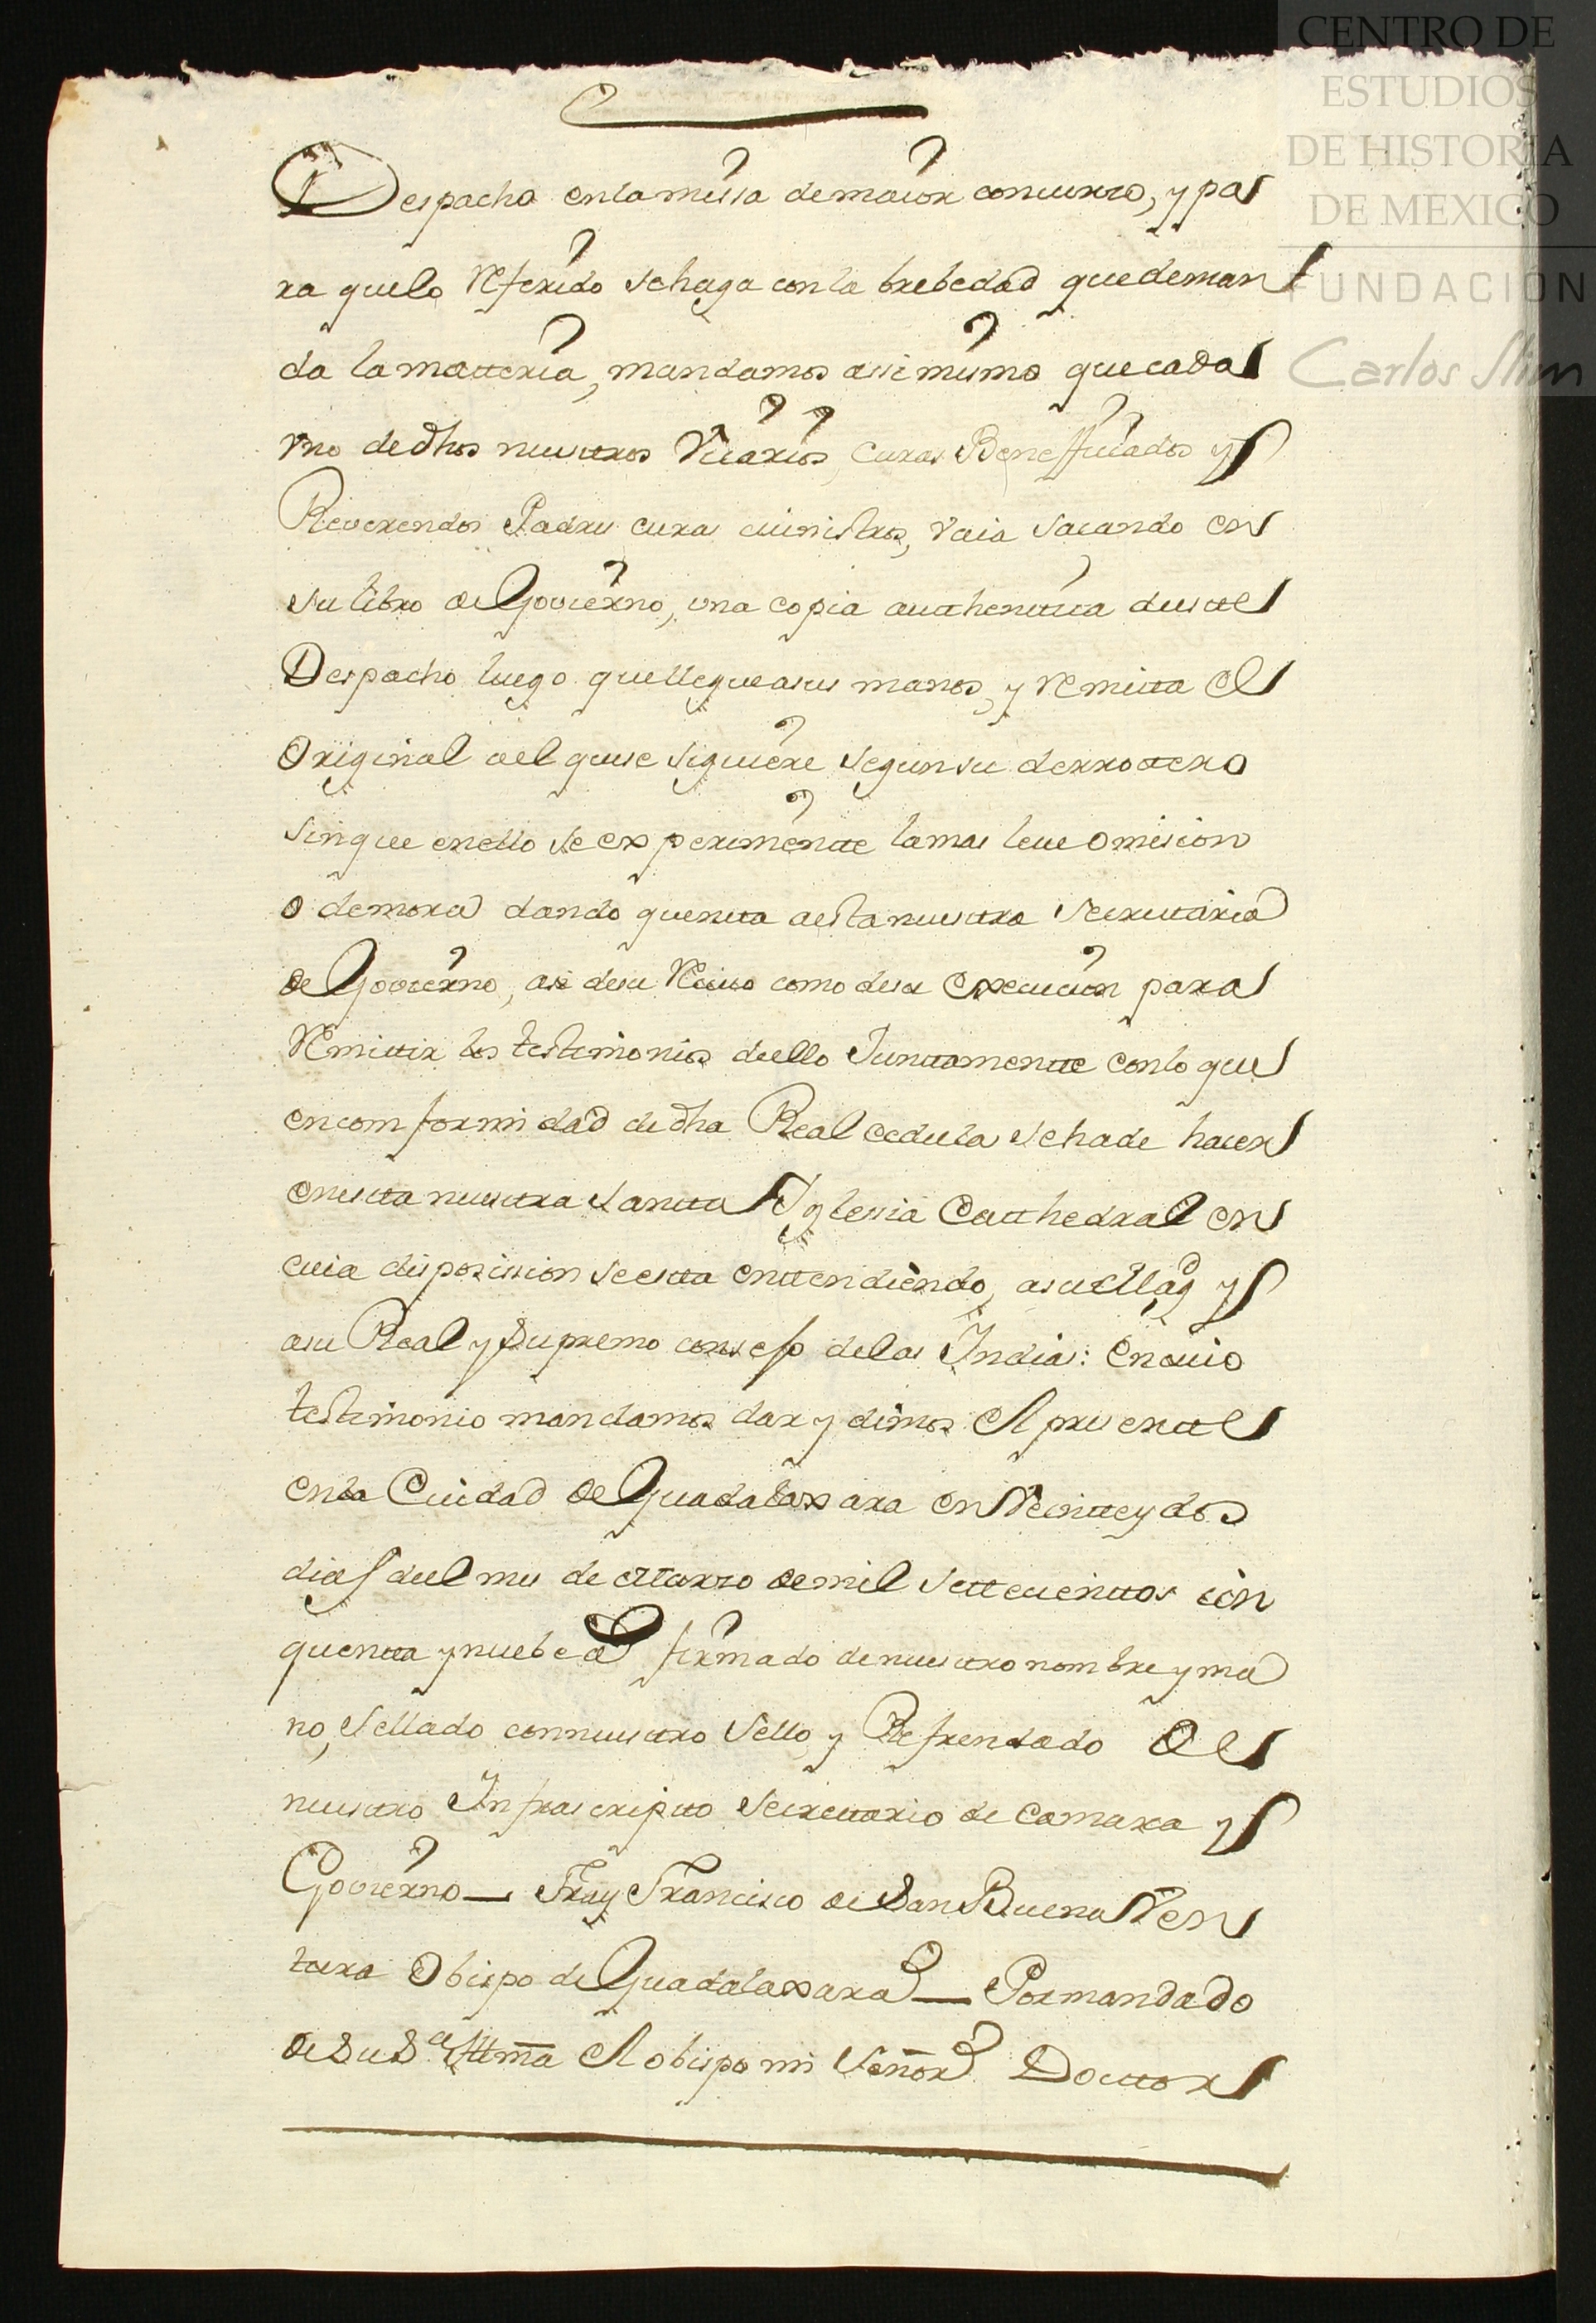 CENTRO DE
ESTUDIOS
DE HISTORIA
DE MEXICO
FUNDACIÓN
Carlos Slim
Despacho enla missa de maior concurzo, y pa
ra quelo Referido sehaga conla brebedad quedeman
da lamatteria, mandamos assi mismo quecada
vno dedhos nuestros Vicarios, Curas Beneficiados y
Reverendos Padres curas ministros, vaia sacando en
su libro de Govierno, vna copia authentica deste
Despacho luego quellegueasus manos, y Remitta el
Original ael quese siguiere segunsu derrottero
sinque enello se experimente lamas leue omision
o demora dando quenta aesta nuestra secrettaria
de Govierno, asi desu Reciuo como desu execucion para
Remittir los testimonios deello Junttamente conlo que
encomformidad dedha Real cedula sehade hacer
enesta nuestra santta Yglessia Catthedral en
cuia disposission seesta enttendiendo, asu Mag.d y
asu Real y Supremo consejo delas Indias: En cuio
testimonio mandamos dar y dimos el presentte
enla Ciudad de Guadalaxara en Veinttey dos
dias deel mes de Marzo de mil settecienttos cin
quentta y nuebe a.s firmado de nuestro nombre y ma
no, sellado connuestro sello, y Refrendado de
nuestro Infrascriptto secrettario de Camara y
Govierno— Fray Francisco de San Buena Ven
tura Obispo de Guadalaxara— Pormandado
de Su S.a Illmã el obispo mi señor Docttor